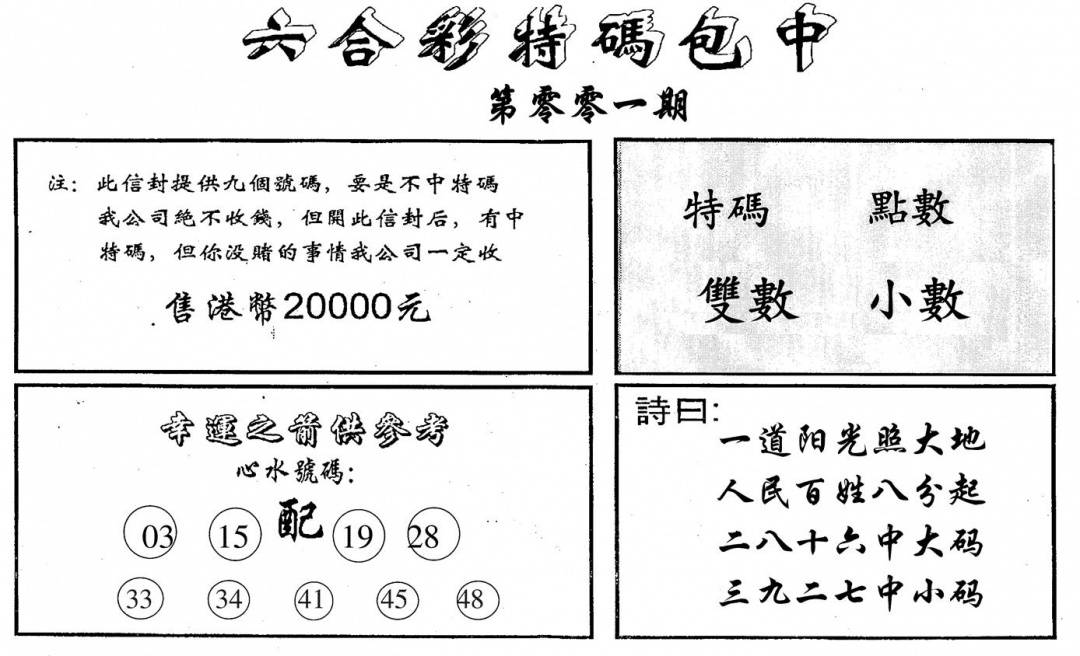 六合彩特碼包中
第零零一期
注：此信封提供九個號碼，要是不中特碼
我公司絕不收錢，但開此信封后，有中
特碼，但你没賭的事情我公司一定收
售港幣20000元
特碼 點數
雙數 小數
幸運之箭供參考
心水號碼：
配
03 15 19 28
33 34 41 45 48
詩曰：
一道阳光照大地
人民百姓八分起
二八十六中大码
三九二七中小码